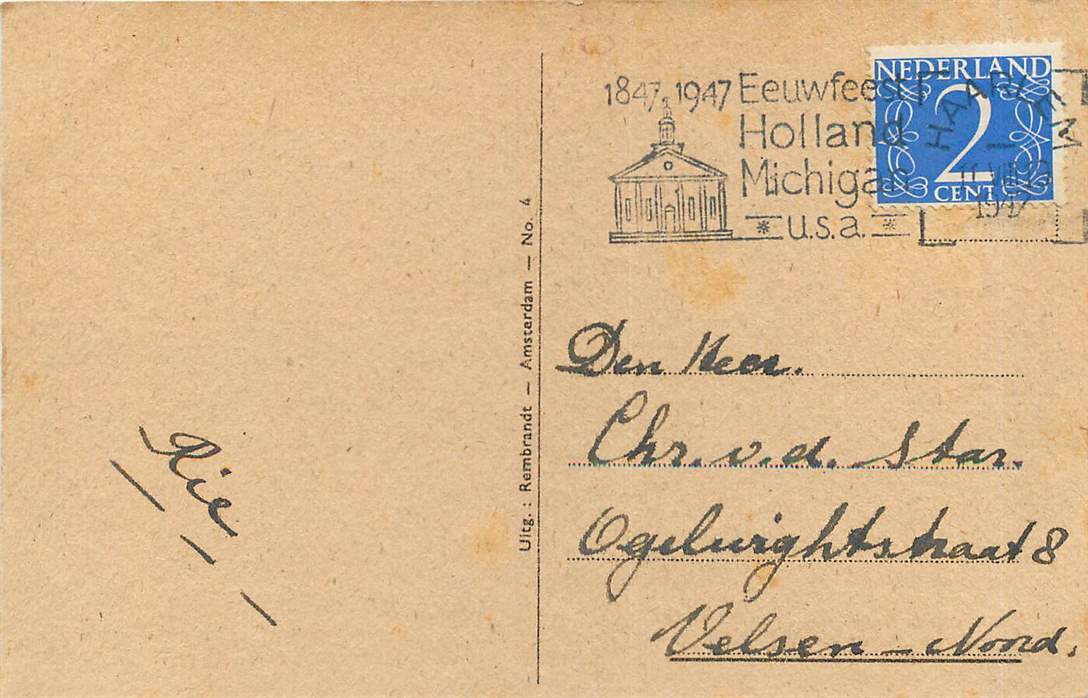 1847 1947 Eeuwfeest
Holland
Michigan
u.s.a.
NEDERLAND
2
CENT
HAARLEM
1947
Uitg.: Rembrandt — Amsterdam — No. 4
Den Heer.
Chr. v.d. Star.
Ogelwightstraat 8
Velsen-Noord.
Rie